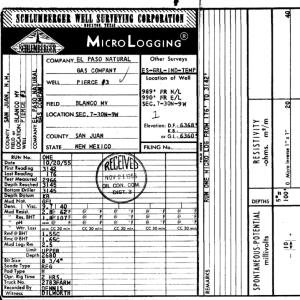 SCHLUMBERGER WELL SURVEYING CORPORATION
HOUSTON, TEXAS
SCHLUMBERGER
MICROLOGGING®
COUNTY SAN JUAN, N.M.
FIELD or LOCATION BLANCO MV
WELL PIERCE #3
COMPANY EL PASO NATURAL GAS COMPANY
COMPANY EL PASO NATURAL
GAS COMPANY
WELL PIERCE #3
FIELD BLANCO MV
LOCATION SEC.7-30N-9W
COUNTY SAN JUAN
STATE NEW MEXICO
Other Surveys
ES-GRL-IND-TEMP
Location of Well
989' FR N/L
990' FR E/L
SEC.7-30N-9W
Elevation: D.F.:
K.B.:
or G.L.:
FILING No.
RUN No. ONE
Date 10/20/55
First Reading
Last Reading 176
Feet Measured 2966
Depth Reached 3145
Bottom Driller 3145
Depth Datum KB
Mud Nat. GEL
Dens. | Visc. 9.7 | 40
Mud Resist.
Res. BHT
pH
Wtr. Loss CC 30 min.
Rmf @ BHT
Rmc @ BHT
Mud Log: Rm 2.5
Limit UPPER
Depth 2680
Bit Size 8 3/4"
Sonde Type REG
Pad Type
Opr. Rig Time 2 HRS.
Truck No. 2783FARM
Recorded By DENNIS
Witness DILWORTH
RECEIVED
NOV 21 1955
OIL CON. COM.
REMARKS
RUN ONE MICRO LOG FROM 176 TO 3142'
RESISTIVITY
-ohms. m²/m
DEPTHS
SPONTANEOUS-POTENTIAL
millivolts